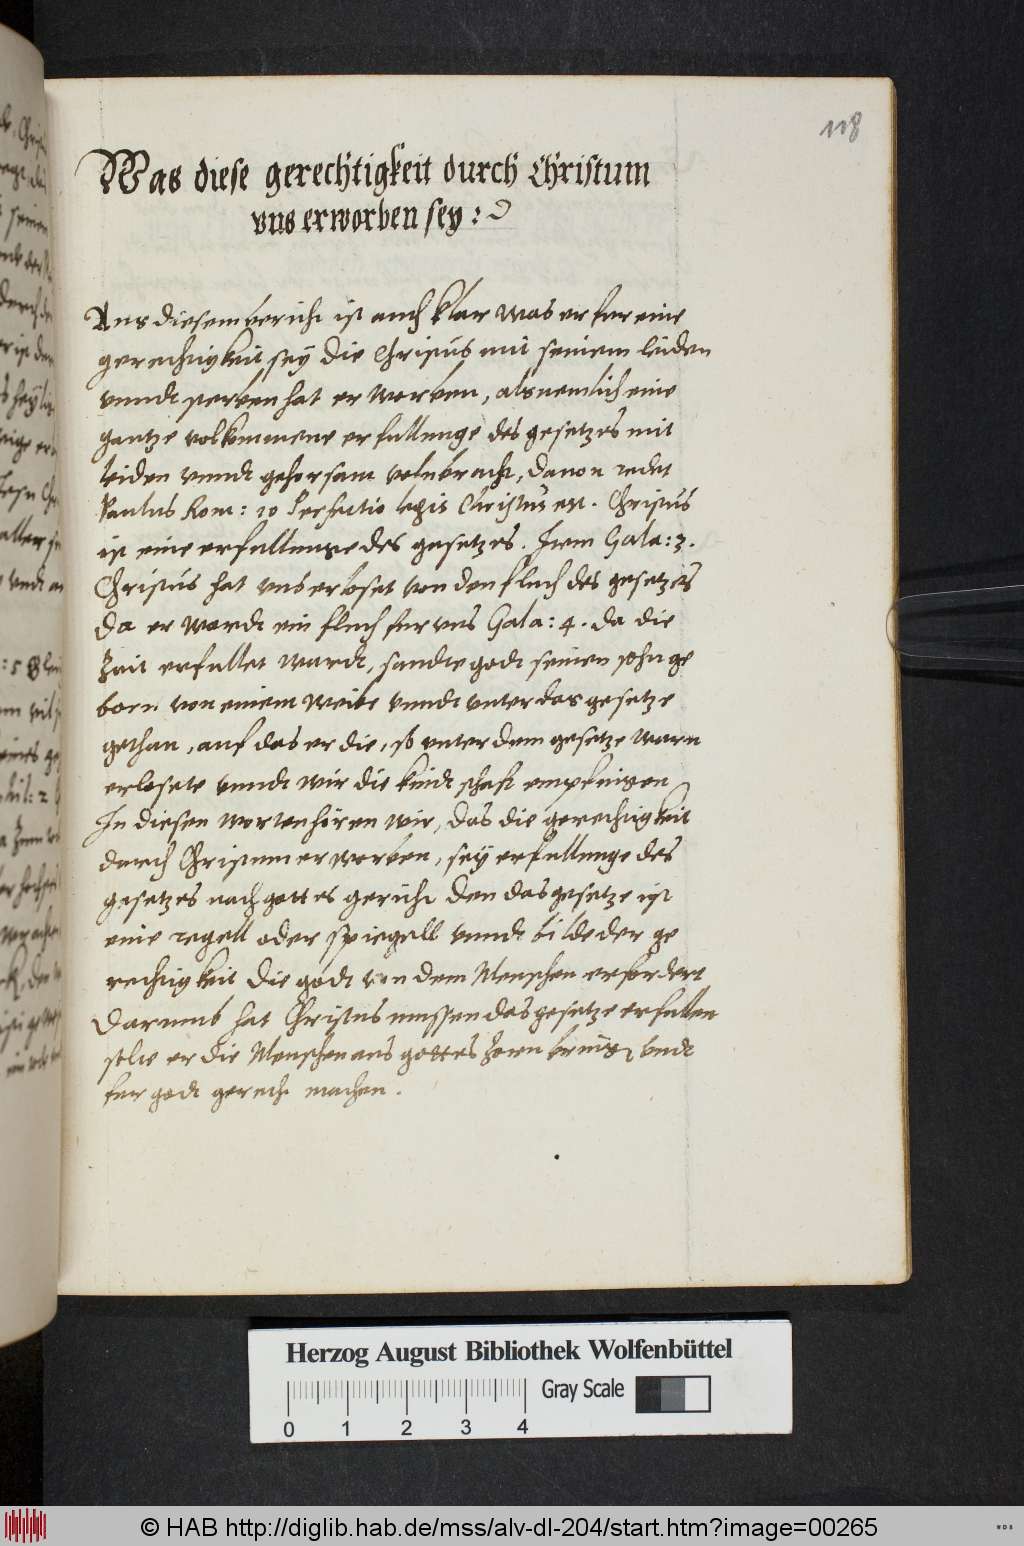 118
Was diese gerechtigkeit durch Christum
vns erworben sey:
Aus diesem bericht ist auch klar was er fur eine
gerechtigkeit sey die Christus mit seinem leiden
vnndt sterben hat erworben, als nemlich eine
gantze volkommene erfullunge des gesetzes mit
leiden vnndt gehorsam volnbracht, dauon redet
Paulus Rom: 10 Perfectio legis Christus est. Christus
ist eine erfullunge des gesetzes. Item Gala: 3.
Christus hat vns erloset von den fluch des gesetzes
da er wardt ein fluch fur vns Gala: 4. da die
Zeit erfullet wardt, sandte godt seinen sohn ge
born von einem weibe vnndt vnter das gesetze
gethan, auf das er die, so vnter dem gesetze warn
erlosete vnndt wir die kindtschaft empfingen
In diesen worten hören wir, das die gerechtigkeit
durch Christum erworben, sey erfullunge des
gesetzes nach gottes gericht den das gesetze ist
eine regell oder spiegell vnndt bilde der ge
rechtigkeit die godt von dem Menschen erfordert
Darumb hat Christus mussen das gesetze erfullen
solte er die Menschen aus gottes Zorn bringen vndt
fur godt gerecht machen.
Herzog August Bibliothek Wolfenbüttel
Gray Scale
0 1 2 3 4
© HAB http://diglib.hab.de/mss/alv-dl-204/start.htm?image=00265